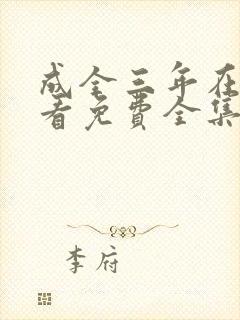 成全三年在
看免费全集
李府